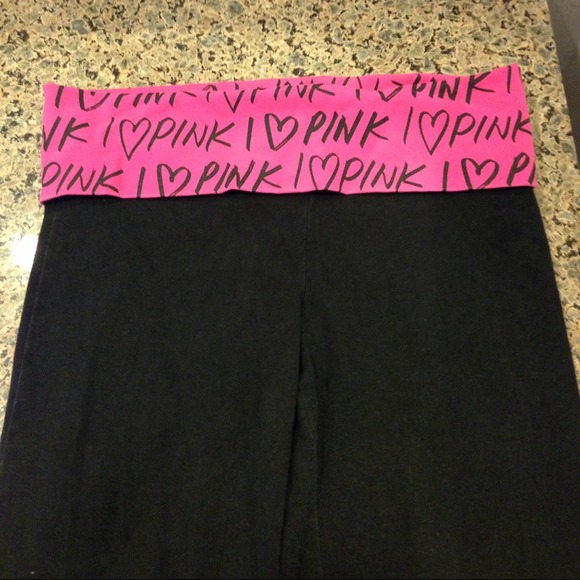 I ♡ PINK I ♡ PINK I ♡ PINK I
NK I ♡ PINK I ♡ PINK I ♡ PINK
PINK I ♡ PINK I ♡ PINK I ♡ PI